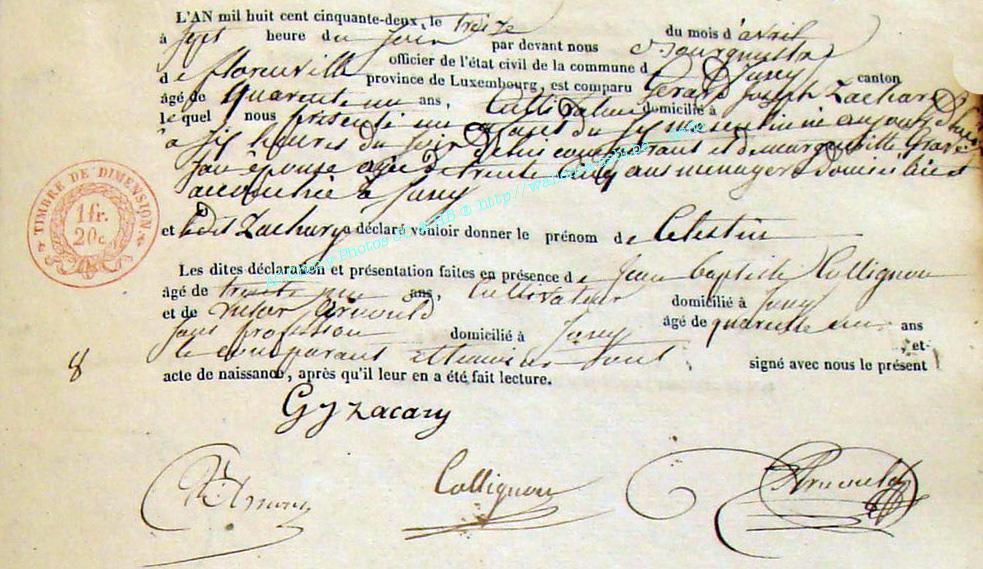 L'AN mil huit cent cinquante-deux, le treize du mois d'avril
à sept heure du soir par devant nous
officier de l'état civil de la commune d Jamay
de florenville province de Luxembourg, est comparu Gerard Joseph Zachary canton
âgé de quarente un ans, Cultivateur domicilié à
le quel nous presenté un enfant du sexe masculin né aujourd'hui
à six heures du soir de lui comparant et de marguerite
son épouse agée de trente cinq ans menagere domiciliée et
accouchée à Jamay
et ledit Zachary a déclaré vouloir donner le prénom de Celestin
Les dites déclaration et présentation faites en présence de Jean Baptiste Collignon
âgé de trente ans, Cultivateur domicilié à Jamay
et de victor Arnould âgé de quarente ans
sans profession domicilié à Jamay , et
le comparant et temoins ont signé avec nous le présent
acte de naissance, après qu'il leur en a été fait lecture.
8
G J Zacary
Collignon
Arnould
TIMBRE DE DIMENSION
1 fr.
20 c.